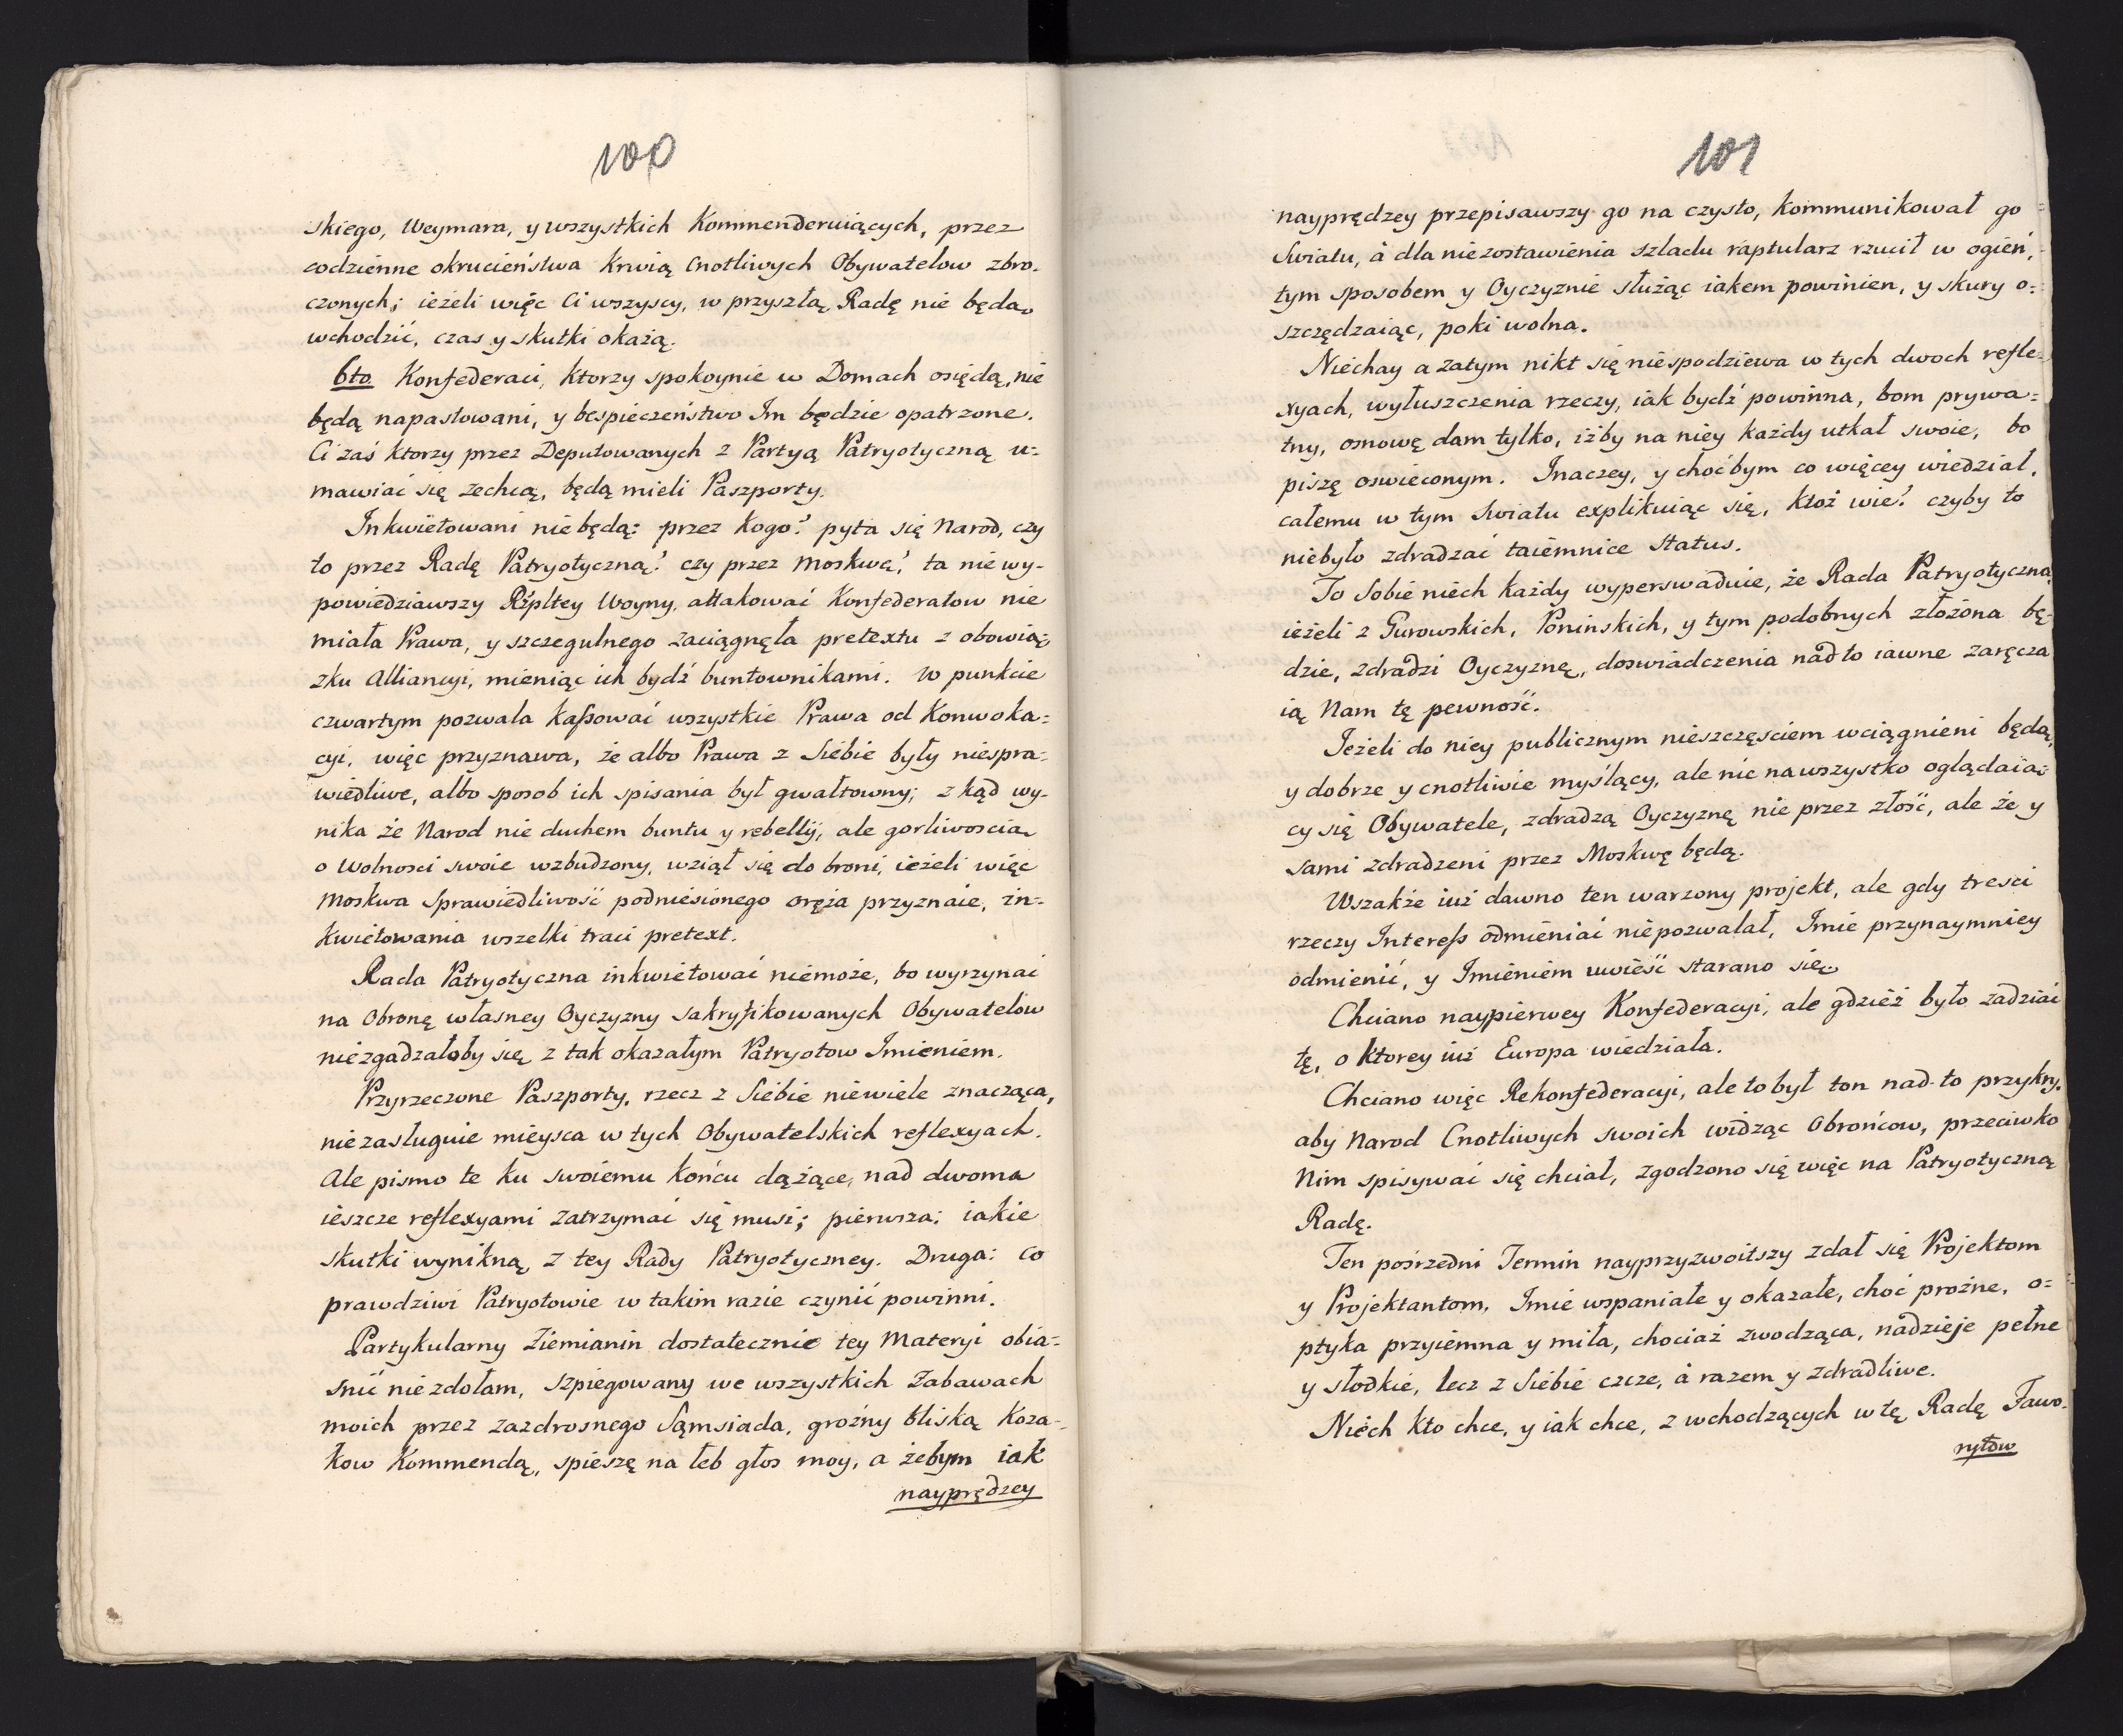 100
skiego, Weymara, y wszystkich Kommenderuiących, przez
codzienne okrucieństwa krwią Cnotliwych Obywatelow zbro-
czonych; ieżeli więc Ci wszyscy, w przyszłą Radę nie będą
wchodzić, czas y skutki okażą.
6to Konfederaci, ktorzy spokoynie w Domach osiędą, nie
będą napastowani, y bespieczeństwo Im będzie opatrzone.
Ci zaś ktorzy przez Deputowanych z Partyą Patryotyczną u=
mawiać się zechcą, będą mieli Paszporty.
Inkwietowani nie będą: przez kogo? pyta się Narod, czy
to przez Radę Patryotyczną? czy przez Moskwę? ta nie wy-
powiedziawszy Rzpltey Woyny, attakować Konfederatow nie
miała Prawa, y szczegulnego zaciągnęła pretextu z obowią-
zku Alliancyi, mieniąc ich bydź buntownikami. W punkcie
czwartym pozwala kassować wszystkie Prawa od Konwoka=
cyi, więc przyznawa, że albo Prawa z Siebie były niespra=
wiedliwe, albo sposob ich spisania był gwałtowny; z kąd wy-
nika że Narod nie duchem buntu y rebellij, ale gorliwoscią
o Wolnosci swoie wzbudzony, wziął się do broni, ieżeli więc
Moskwa Sprawiedliwość podniesionego oręża przyznaie, in=
kwietowania wszelki traci pretext.
Rada Patryotyczna inkwietować niemoże, bo wyrzynać
na Obronę własney Oyczyzny sakryfikowanych Obywatelow
niezgadzałoby się z tak okazałym Patryotow Imieniem.
Przyrzeczone Paszporty, rzecz z Siebie niewiele znacząca,
niezasługuie mieysca w tych Obywatelskich reflexyach.
Ale pismo te ku swoiemu końcu dążące, nad dwoma
ieszcze reflexyami zatrzymać się musi; pierwsza: iakie
skutki wynikną z tey Rady Patryotyczney. Druga: co
prawdziwi Patryotowie w takim razie czynić powinni.
Partykularny Ziemianin dostatecznie tey Materyi obia=
snić niezdołam, szpiegowany we wszystkich Zabawach
moich przez zazdrosnego Sąmsiada, groźny bliską Koza-
kow Kommendą, spieszę na łeb głos moy, a żebym iak
nayprędzey
101
nayprędzey przepisawszy go na czysto, kommunikował go
Swiatu, à dla niezostawienia szladu raptularz rzucił w ogień,
tym sposobem y Oyczyznie służąc iakem powinien, y skury o=
szczędzaiąc, poki wolna.
Niechay a zatym nikt się niespodziewa w tych dwoch refle=
xyach, wyłuszczenia rzeczy, iak bydź powinna, bom prywa=
tny, osnowę dam tylko, iżby na niey każdy utkał swoie, bo
piszę oswieconym. Inaczey, y choćbym co więcey wiedział,
całemu w tym Swiatu explikuiąc się, ktoż wie? czyby to
niebyło zdradzać taiemnice Status.
To Sobie niech każdy wyperswaduie, że Rada Patryotyczna,
ieżeli z Gurowskich, Poninskich, y tym podobnych złożona bę-
dzie, zdradzi Oyczyznę, doswiadczenia nad to iawne zaręcza
ią Nam tę pewność.
Jeżeli do niey publicznym nieszczęsciem wciągnieni będą,
y dobrze y cnotliwie myślący, ale nie na wszystko oglądaią-
cy się Obywatele, zdradzą Oyczyznę nie przez złość, ale że y
sami zdradzeni przez Moskwę będą.
Wszakże iuż dawno ten warzony projekt, ale gdy tresci
rzeczy Interess odmieniać niepozwalał, Imie przynaymniey
odmienić, y Imieniem uwieść starano się.
Chciano naypierwey Konfederacyi, ale gdzież było zadziać
tę, o ktorey iuż Europa wiedziała.
Chciano więc Rekonfederacyi, ale to był ton nad to przykry,
aby Narod Cnotliwych swoich widząc Obrońcow, przeciwko
Nim spisywać się chciał, zgodzono się więc na Patryotyczną
Radę.
Ten posrzedni Termin nayprzyzwoitszy zdał się Projektom
y Projektantom, Imie wspaniałe y okazałe, choć prożne, o=
ptyka przyiemna y miła, chociaż zwodząca, nadzieje pełne
y słodkie, lecz z Siebie czcze, à razem y zdradliwe.
Niech kto chce, y iak chce, z wchodzących w tę Radę Fawo-
rytow